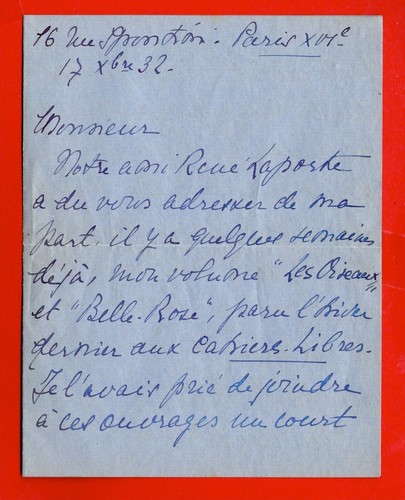 16 rue Spontini. Paris XVIe
17 Xbre 32.
Monsieur
Notre ami René Laporte
a du vous adresser de ma
part, il y a quelques semaines
déjà, mon volume "Les Oiseaux"
et "Belle-Rose", paru l'hiver
dernier aux Cahiers-Libres.
Je l'avais prié de joindre
à ces ouvrages un court